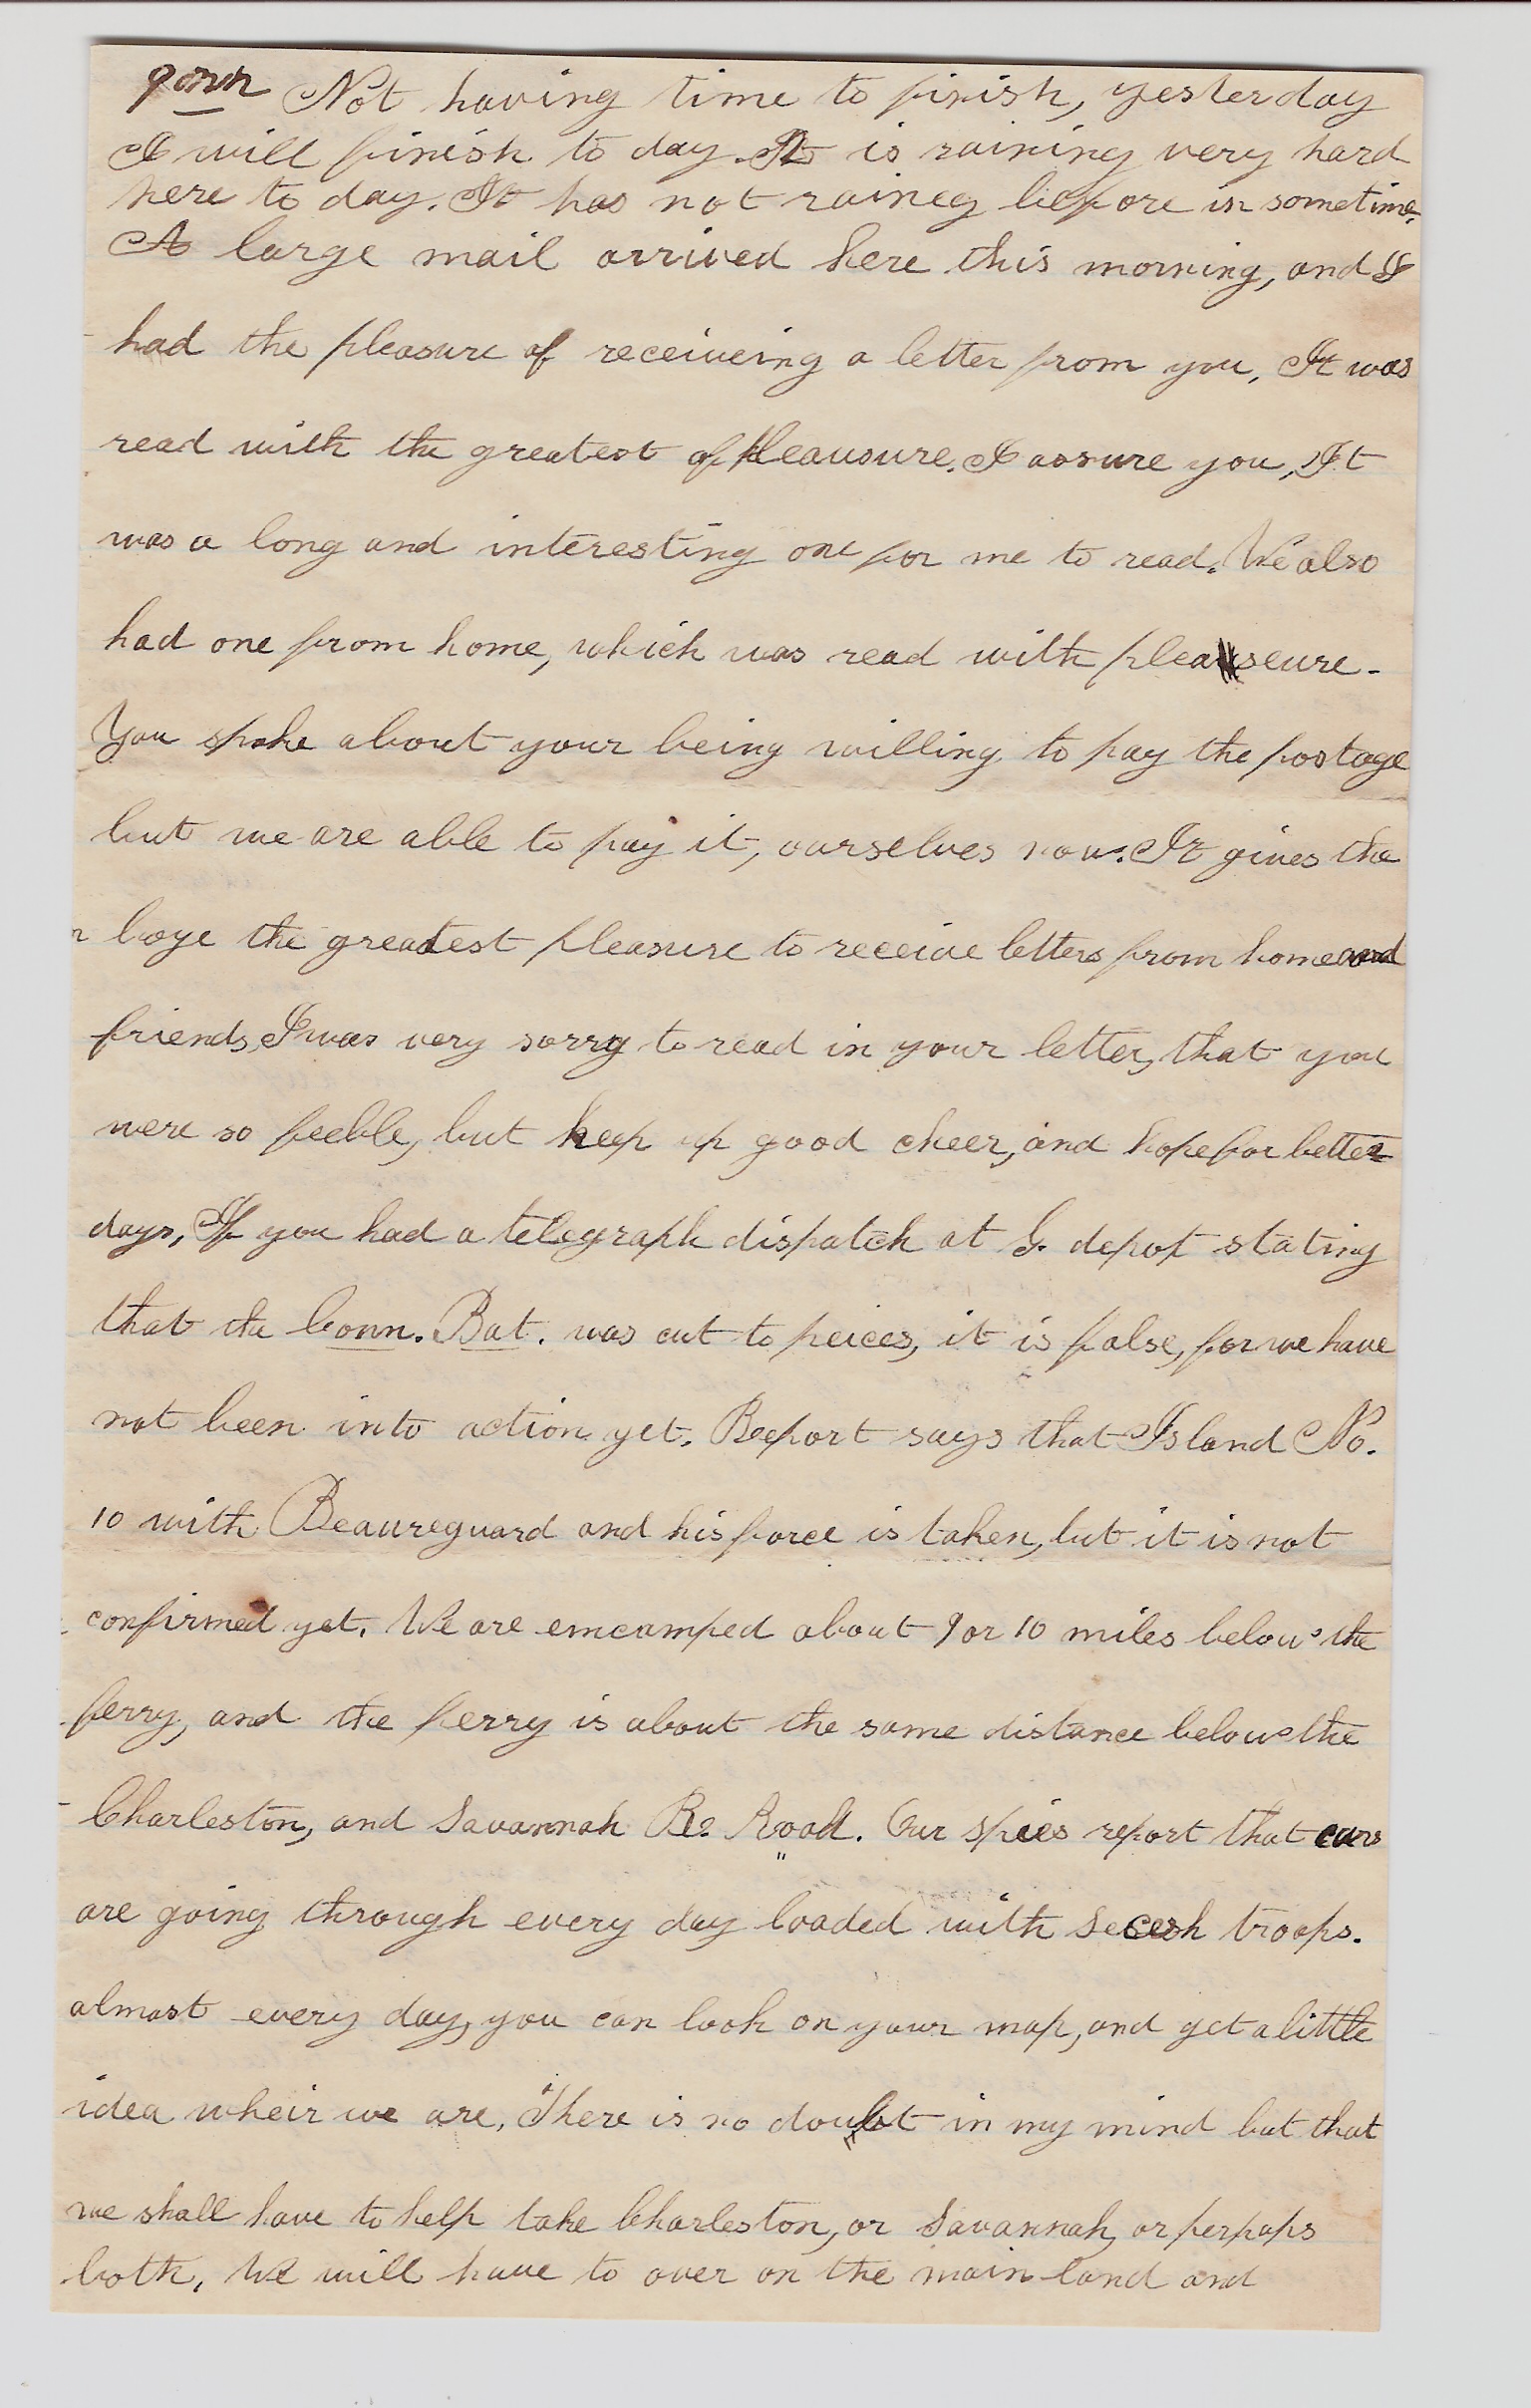 Not having time to finish, yesterday
I will finish to day. It is raining very hard
here to day. It has not raineg before in sometime.
A large mail arrived here this morning, and I
had the pleasure of receiveing a letter from you, It was
read with the greatest of pleausure. I assure you, It
was a long and interesting one for me to read. We also
had one from home, which was read with pleaseure.
You spoke about your being willing to pay the postage
but we are able to pay it, ourselves now. It gives the
boye the greatest pleasure to receive letters from home and
friends, I was very sorry to read in your letter, that you
were so feeble, but keep up good cheer, and hope for better
days, If you had a telegraph dispatch at G. depot stating
that the Conn. Bat. was cut to peices, it is false, for we have
not been into action yet. Report says that Island No.
10 with Beaureguard and his force is taken, but it is not
confirmed yet. We are emcamped about 9 or 10 miles below the
ferry, and the ferry is about the same distance below the
Charleston, and Savannah R. Road. Our spies report that cars
are going through every day loaded with secesh troops.
almost every day, you can look on your map, and get a little
idea wheir we are, There is no doubt in my mind but that
we shall have to help take Charleston, or Savannah, or perpaps
both. We will have to over on the main land and